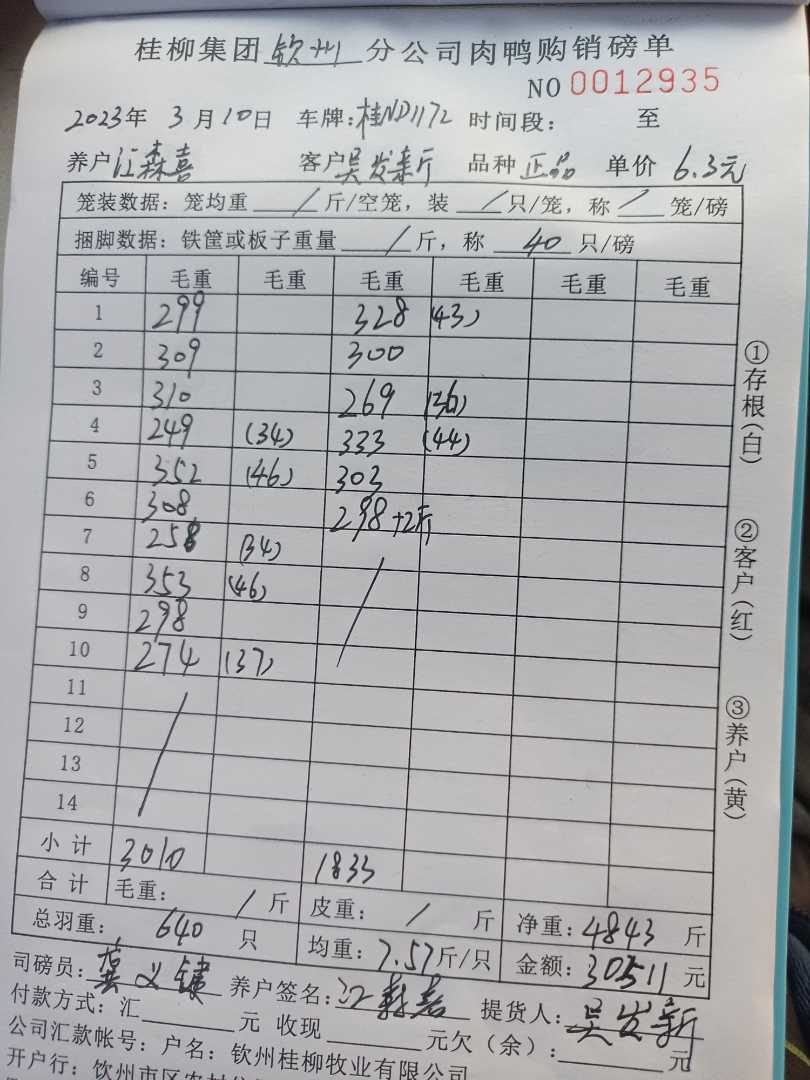 桂柳集团 钦州 分公司肉鸭购销磅单
NO 0012935
2023年 3月10日 车牌:桂ND1172 时间段: 至
养户 江森喜 客户 吴发新 品种 正品 单价 6.3元
笼装数据: 笼均重 / 斤/空笼, 装 / 只/笼, 称 / 笼/磅
捆脚数据: 铁筐或板子重量 / 斤, 称 40 只/磅
编号 毛重 毛重 毛重 毛重 毛重 毛重
1 299 328 (43)
2 309 300
3 310 269 (36)
4 249 (34) 333 (44)
5 352 (46) 303
6 308 298+2斤
7 258 (34) /
8 353 (46)
9 298
10 274 (37)
11 /
12
13
14
小计 3010 1833
合计 毛重: / 斤 皮重: / 斤 净重: 4843 斤
总羽重: 640 只 均重: 7.57斤/只 金额: 30511 元
司磅员: 义 养户签名: 江森喜 提货人: 吴发新
付款方式: 汇 元 收现 元欠(余): 元
公司汇款帐号: 户名: 钦州桂柳牧业有限公司
开户行: 钦州市区农村信
①存根(白)
②客户(红)
③养户(黄)